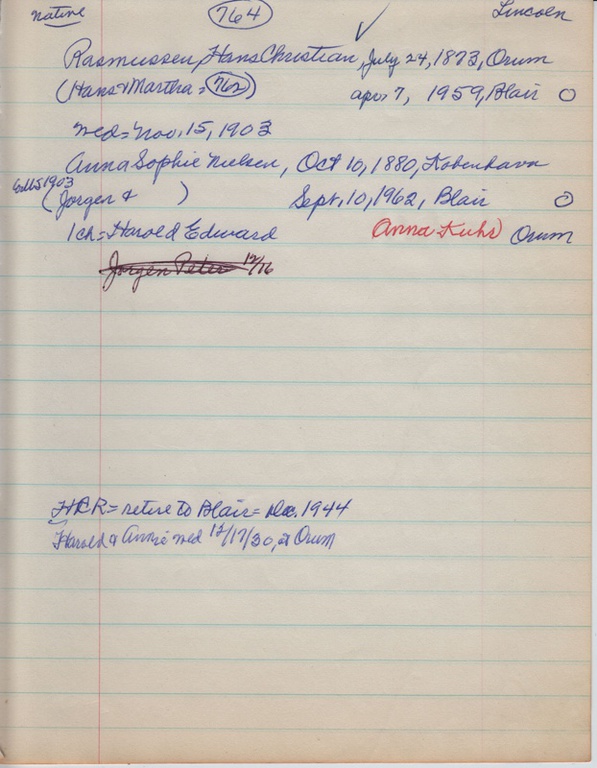 native 764 Lincoln
Rasmussen, Hans Christian, July 24, 1873, Orum
(Hans & Martha = 762) Apr. 7, 1959, Blair O
Wed = Nov. 15, 1903
Anna Sophie Nielsen, Oct 10, 1880, Kobenhavn
1903
(Jorgen & ) Sept. 10, 1962, Blair O
1 ch = Harold Edward Anna Kuhr Orum
Jorgen Peter 12/16
HCR = retire to Blair = Dec. 1944
Harold & Annie wed 12/17/30, at Orum